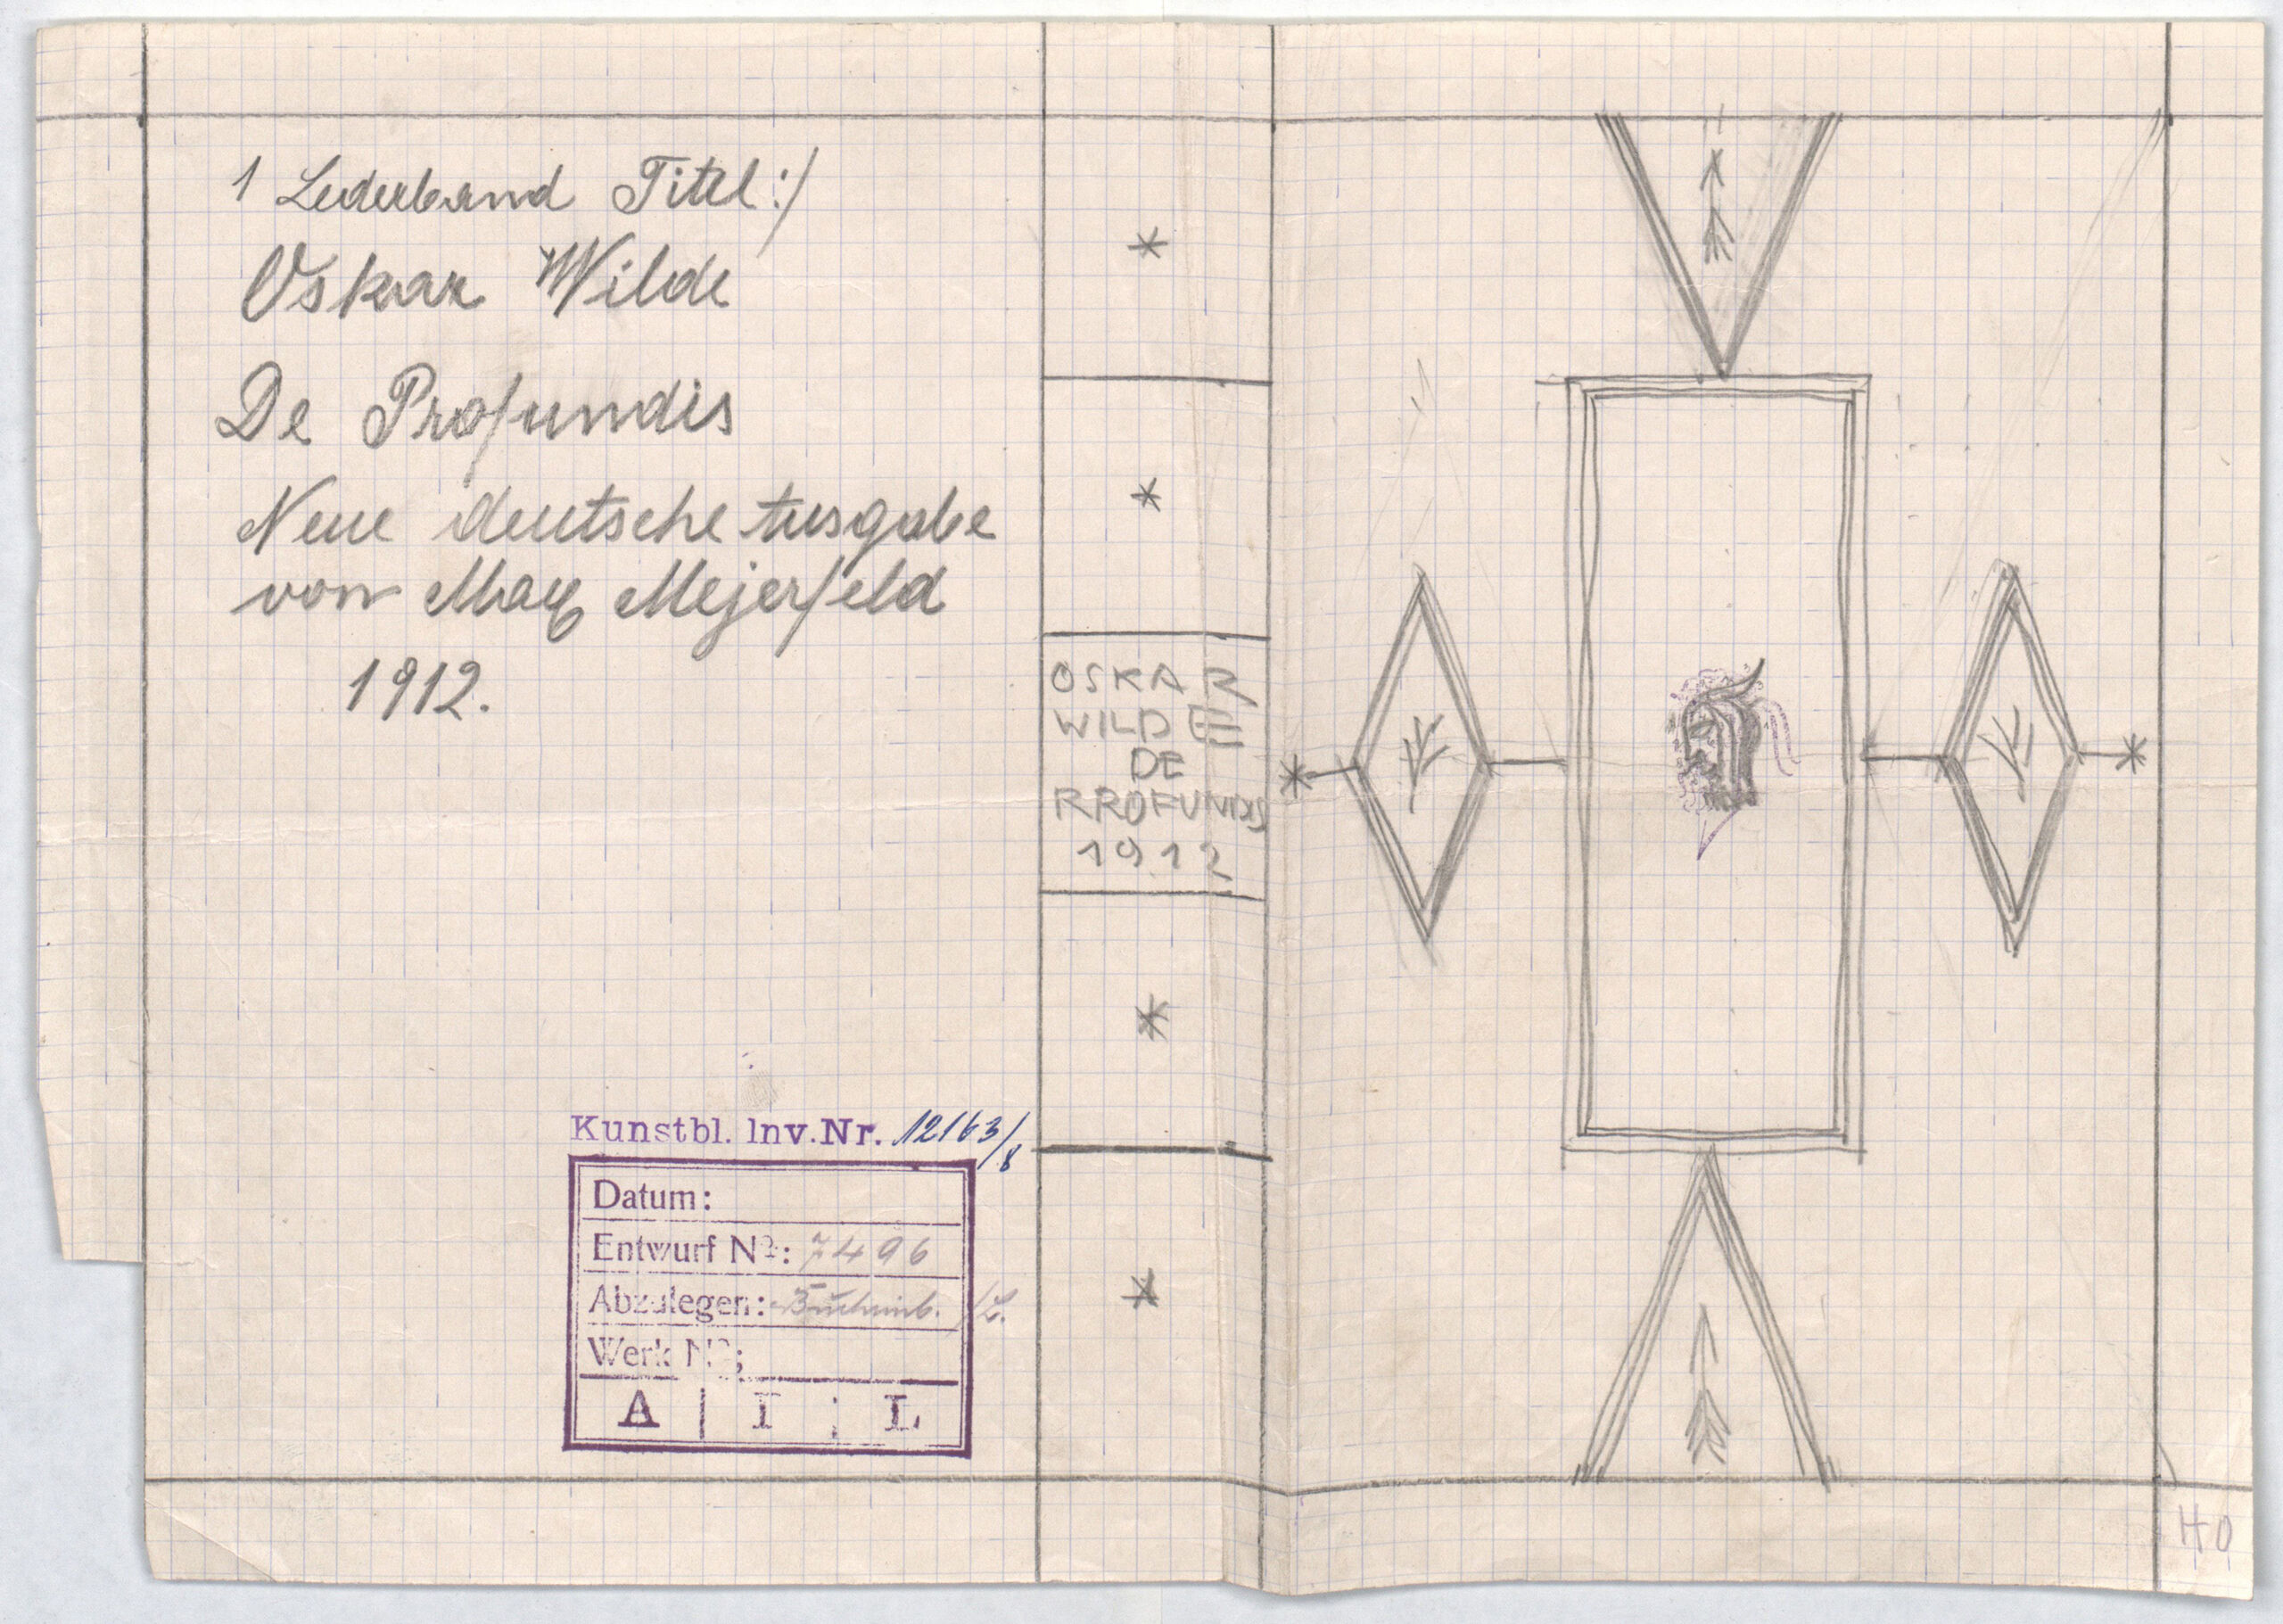 1 Lederband Titel:/
Oskar Wilde
De Profundis
Neue deutsche Ausgabe
von Max Mejerfeld
1912.
OSKAR
WILDE
DE
RROFUNDIS
1912
Kunstbl. Inv. Nr. 12163/8
Datum:
Entwurf Nº: 7496
Abzulegen:
Werk Nº:
A | I | L
HO